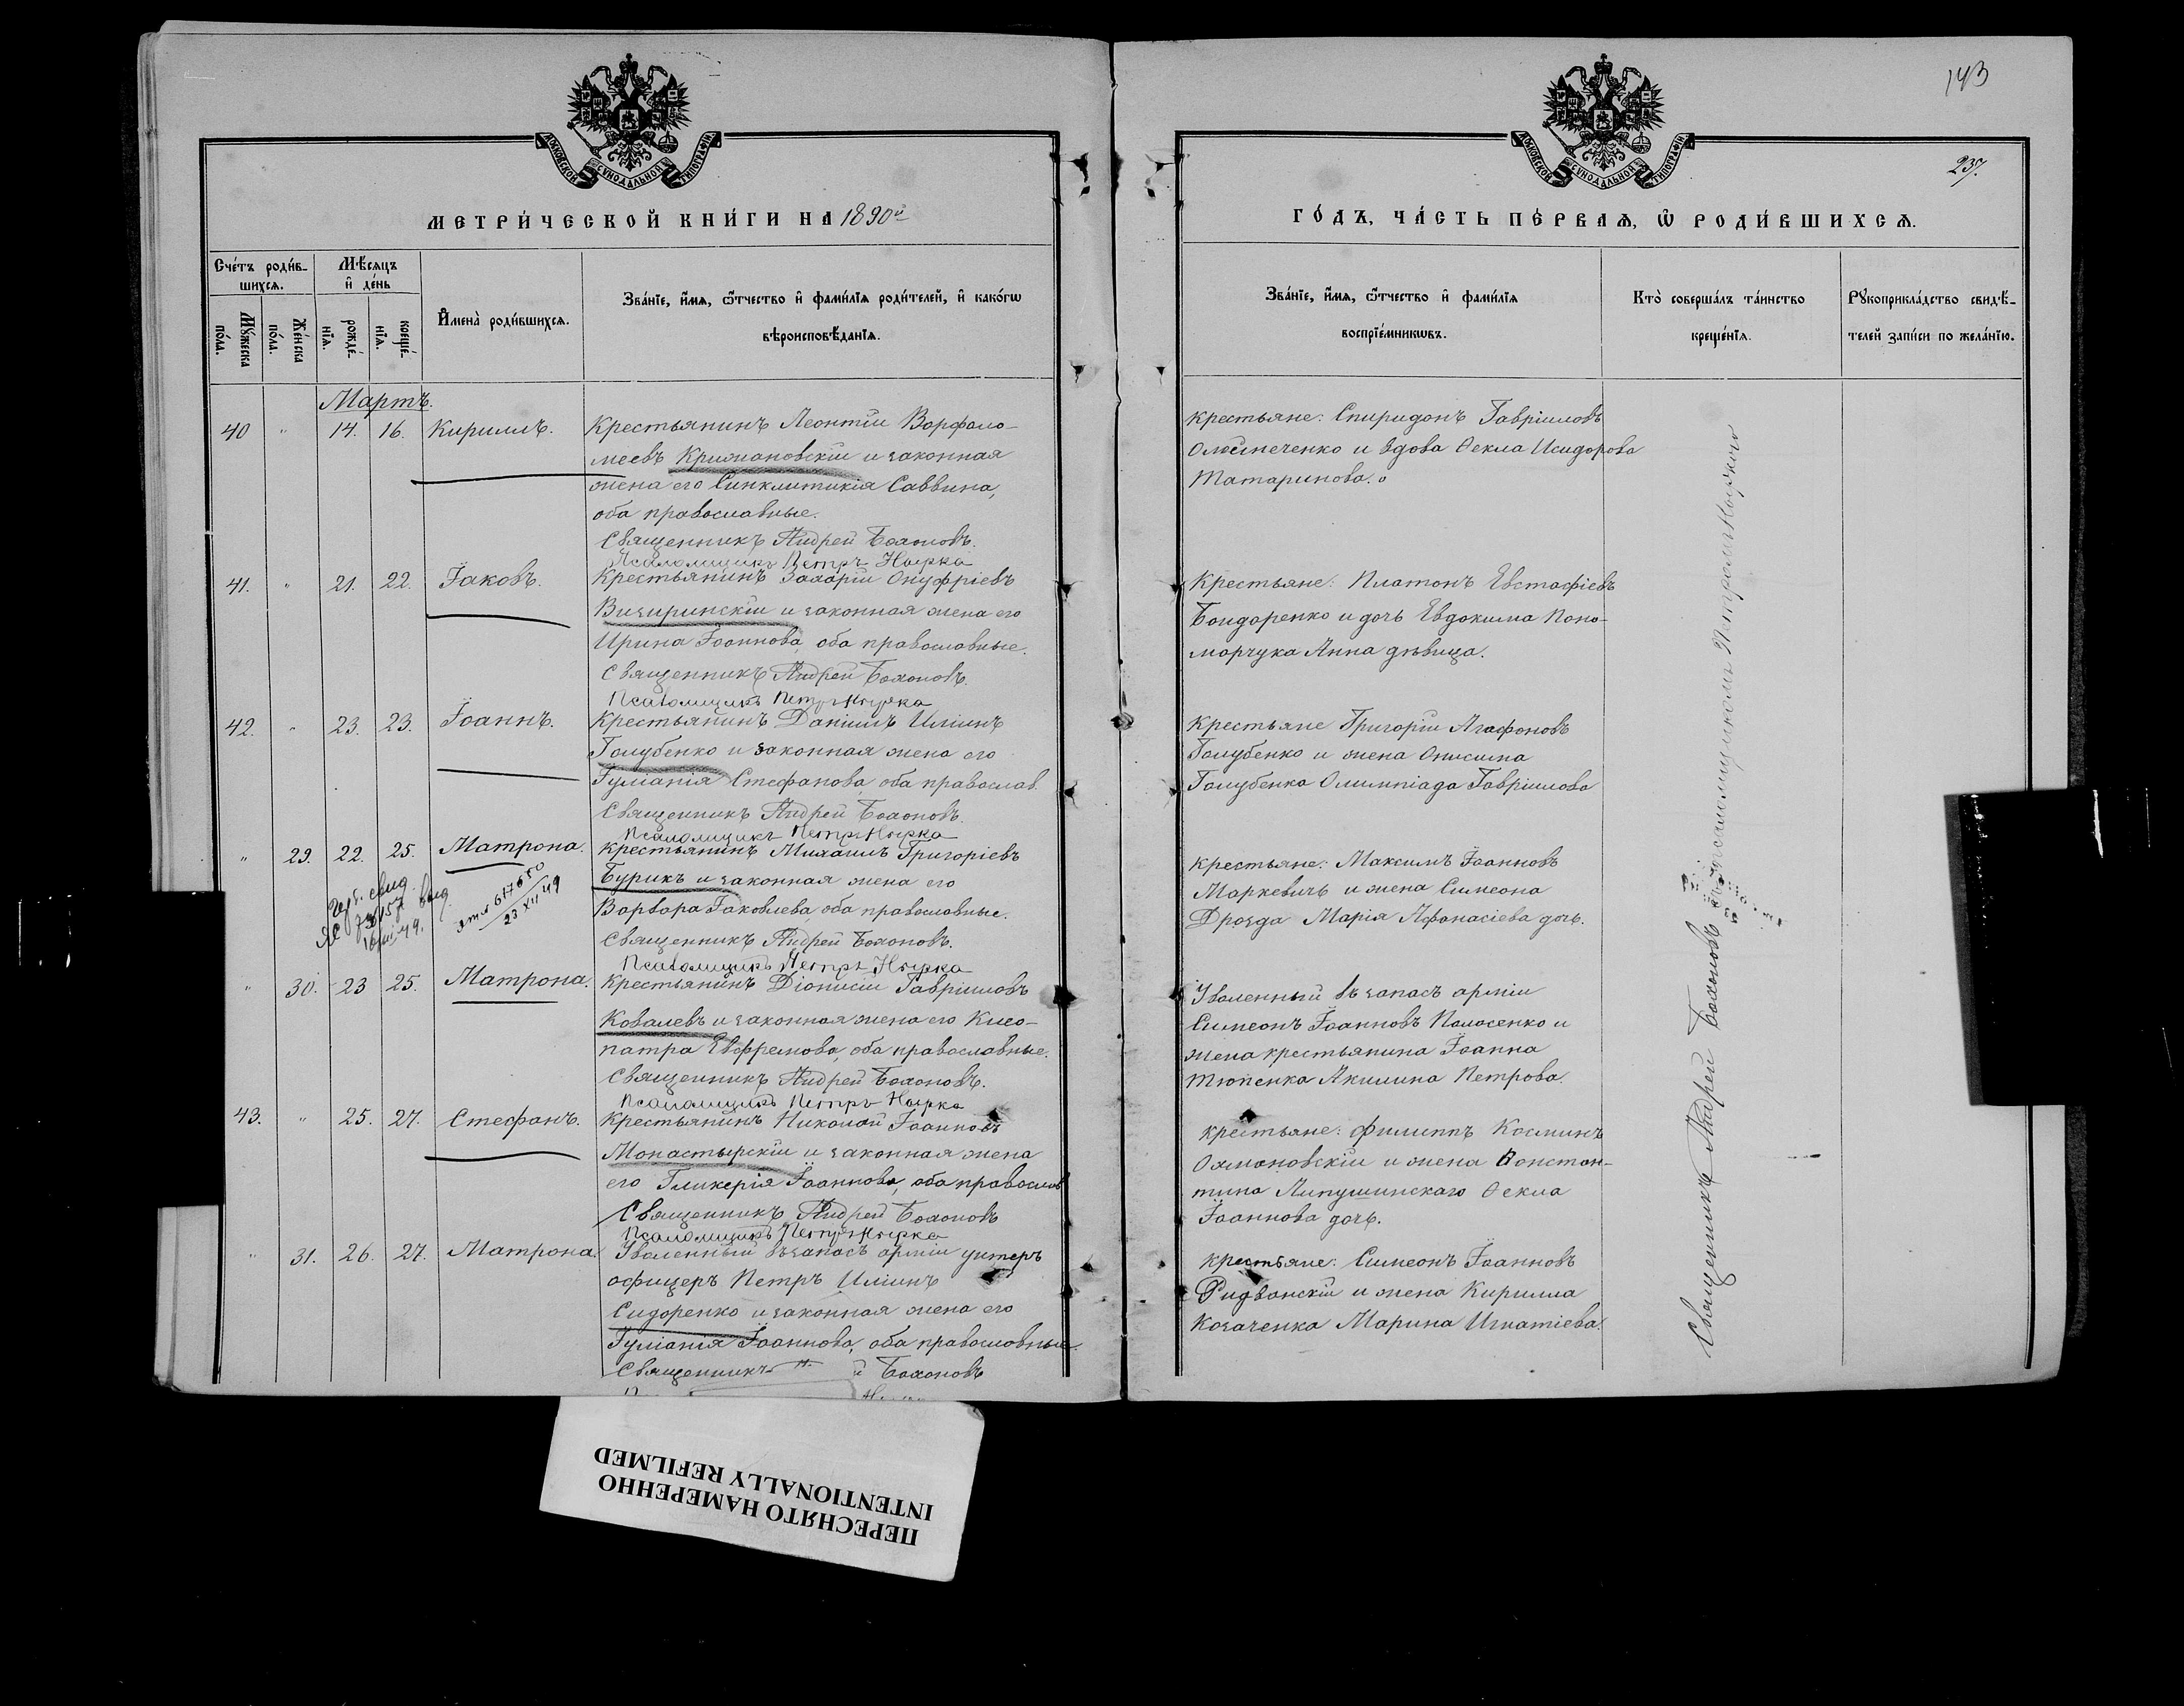 143
237.
МОСКОВСКОЙ СѴНОДАЛЬНОЙ ТИПОГРАФІИ
МОСКОВСКОЙ СѴНОДАЛЬНОЙ ТИПОГРАФІИ
МЕТРИ́ЧЕСКОЙ КНИ́ГИ НА 1890й
ГО́ДЪ, ЧА́СТЬ ПЕ́РВАѦ, Ѿ РОДИ́ВШИХСѦ.
Сче́тъ роди́в-
шихсѧ.
Мꙋ́жеска
по́ла.
Же́нска
по́ла.
Мѣ́сѧцъ
и҆ де́нь
рожде́-
нїѧ.
креще́-
нїѧ.
И҆мена̀ роди́вшихсѧ.
Зва́нїе, и҆́мѧ, ѻ҆́тчество и҆ фами́лїѧ роди́телей, и҆ како́гѡ
вѣроисповѣ́данїѧ.
Зва́нїе, и҆́мѧ, ѻ҆́тчество и҆ фами́лїѧ
воспрїе́мникѡвъ.
Кто̀ соверша́лъ та́инство
креще́нїѧ.
Рꙋкоприкла́дство свидѣ́-
телей за́писи по жела́нїю.
Мартъ.
40 " 14. 16. Кириллъ. Крестьянинъ Леонтій Варфоло-
меевъ Крижановскій и законная
жена его Синклитикія Саввина,
оба православные.
Священникъ Андрей Бохоновъ.
Псаломщикъ Петръ Нырка
крестьяне: Спиридонъ Гавріиловъ
и вдова Ѳекла Исидорова
Татаринова.
41. " 21. 22. Іаковъ. Крестьянинъ Захарій Онуфріевъ
Визиринскій и законная жена его
Ирина Іоаннова, оба православные.
Священникъ Андрей Бохоновъ.
Псаломщикъ Петръ Нырка
Крестьяне: Платонъ Евстафіевъ
Бондаренко и дочь Евдокима Поно-
марчука Анна дѣвица.
42. " 23. 23. Іоаннъ. Крестьянинъ Даніилъ Иліинъ
Голубенко и законная жена его
Іуліанія Стефанова, оба православ.
Священникъ Андрей Бохоновъ.
Псаломщикъ Петръ Нырка
Крестьяне Григорій Агафоновъ
Голубенко и жена Онисима
Голубенка Олимпіада Гавріилова
" 29. 22. 25. Матрона. Крестьянинъ Михаилъ Григоріевъ
Бурикъ и законная жена его
Варвара Іаковлева, оба православные.
Священникъ Андрей Бохоновъ.
Псаломщикъ Петръ Нырка
свид.
23 XII 49
крестьяне: Максимъ Іоанновъ
Маркевичъ и жена Симеона
Дрозда Марія Афанасіева дочь.
" 30. 23 25. Матрона. Крестьянинъ Діонисій Гавріиловъ
Ковалевъ и законная жена его Клео-
патра Евфремова, оба православные.
Священникъ Андрей Бохоновъ.
Псаломщикъ Петръ Нырка
Уволенный въ запасъ арміи
Симеонъ Іоанновъ Полосенко и
жена крестьянина Іоанна
Тюпенка Акилина Петрова.
43. " 25. 27. Стефанъ. Крестьянинъ Николай Іоанновъ
Монастырскій и законная жена
его Гликерія Іоаннова, оба православ
Священникъ Андрей Бохоновъ
Псаломщикъ Петръ Нырка
крестьяне: Филиппъ Косминъ
Охмановскій и жена Констан-
тина Липушинскаго Ѳекла
Іоаннова дочь.
" 31. 26. 27. Матрона. Уволенный въ запасъ арміи унтеръ
офицеръ Петръ Иліинъ
Сидоренко и законная жена его
Іуліанія Іоаннова, оба православные.
Священникъ Бохоновъ
крестьяне: Симеонъ Іоанновъ
Ридванскій и жена Кирилла
Козаченка Марина Игнатіева.
Священникъ Андрей Бохоновъ съ псаломщикомъ Петромъ Ныркою
ПЕРЕСНЯТО НАМЕРЕННО
INTENTIONALLY REFILMED